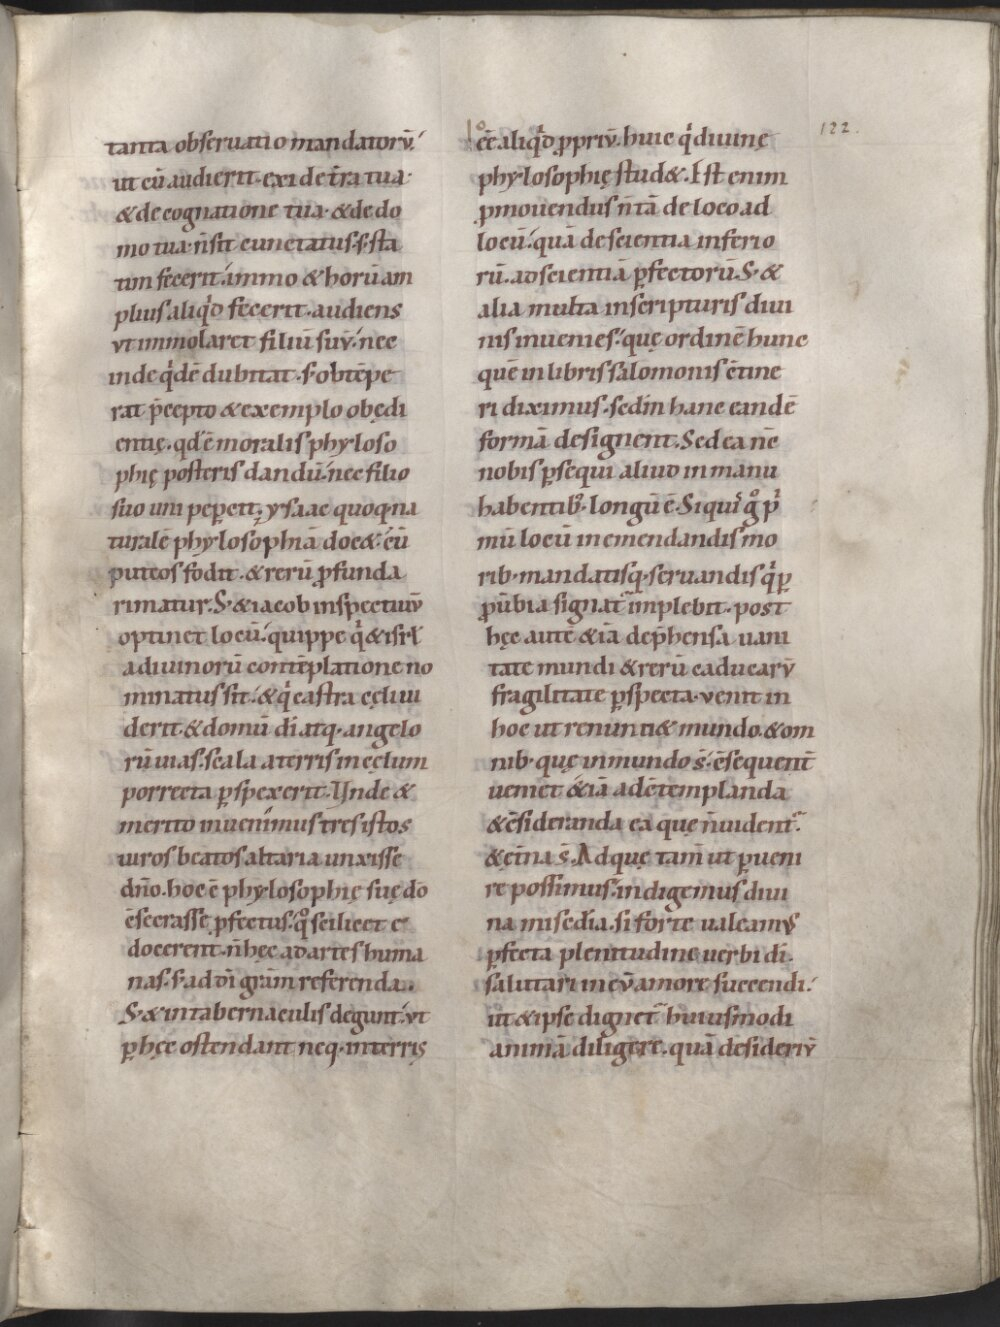 tanta obseruatio mandatorū.
ut cū audierit. exi de t̄ra tua.
& de cognatione tua. & de do
mo tua. n̄ sit cunctatus. s; sta
tim fecerit. immo & horū am
plius aliqͥd fecerit. audiens
ut immolaret filiū suū. nec
inde qͥdē dubitat. s; obtēpe
rat p̄cepto & exemplo obędi
entię. qd' ē moralis phyloso
phię posteris dandū. nec filio
suo uni peꝑcit. ysaac quoq; na
turalē phylosophiā doc&. cū
puteos fodit. & rerū ꝓfunda
rimatur. S; & iacob inspectiuū
optinet locū. quippe qͥ & isrł
a diuinorū contēplatione no
minatus sit. & qͥ castra cęli ui
derit. & domū dī atq; angelo
rū uias. scala a terris in cęlum
porrecta ꝑspexerit. Unde &
merito inuenimus tres istos
uiros beatos altaria unxisse
dn̄o. hoc ē phylosophię suę do
ēsecrasse ꝓfectus. qͦ scilicet e
docerent. n̄ hęc ad artes huma
nas. s; ad dī grām referenda.
S; & in tabernaculis degunt. ut
ꝑ hęc ostendant neq; in terris
122.
lo
eē aliqͥd ꝓpriū. huic qͥ diuinę
phylosophię stud&. Est enim
ꝓmouendus n̄ tā de loco ad
locū. quā de scientia inferio
rū. ad scientiā ꝑfectorū. S; &
alia multa in scripturis diui
nis inuenies. quę ordinē hunc
quē in libris salomonis ētine
ri diximus. sed in hanc eandē
formā designent. Sed ea nc̄
nobis ꝑsequi aliud in manu
habentib;. longū ē. Si quis gͦ pͥ
mū locū in emendandis mo
rib; mandatisq; seruandis qͥ ꝑ
ꝓūbia signat᷑ implebit. post
hęc autē & iā dep̄hensa uani
tate mundi & rerū caducarū
fragilitate ꝑspecta. uenit in
hoc ut renunti& mundo. & om
nib; quę in mundo s̄. ēsequent̄
ueniet & iā ad ētemplanda
& ēsideranda ea quę n̄ uident᷑.
& ęt̄na s̄. Ad quę tam̄ ut ꝑueni
re possimus. indigemus diui
na misc̄dia. si forte ualeamus
ꝑfecta plenitudine uerbi dī.
salutari in eū amore succendi.
ut & ipse dignet᷑ huiusmodi
animā diligere. quā desideriū